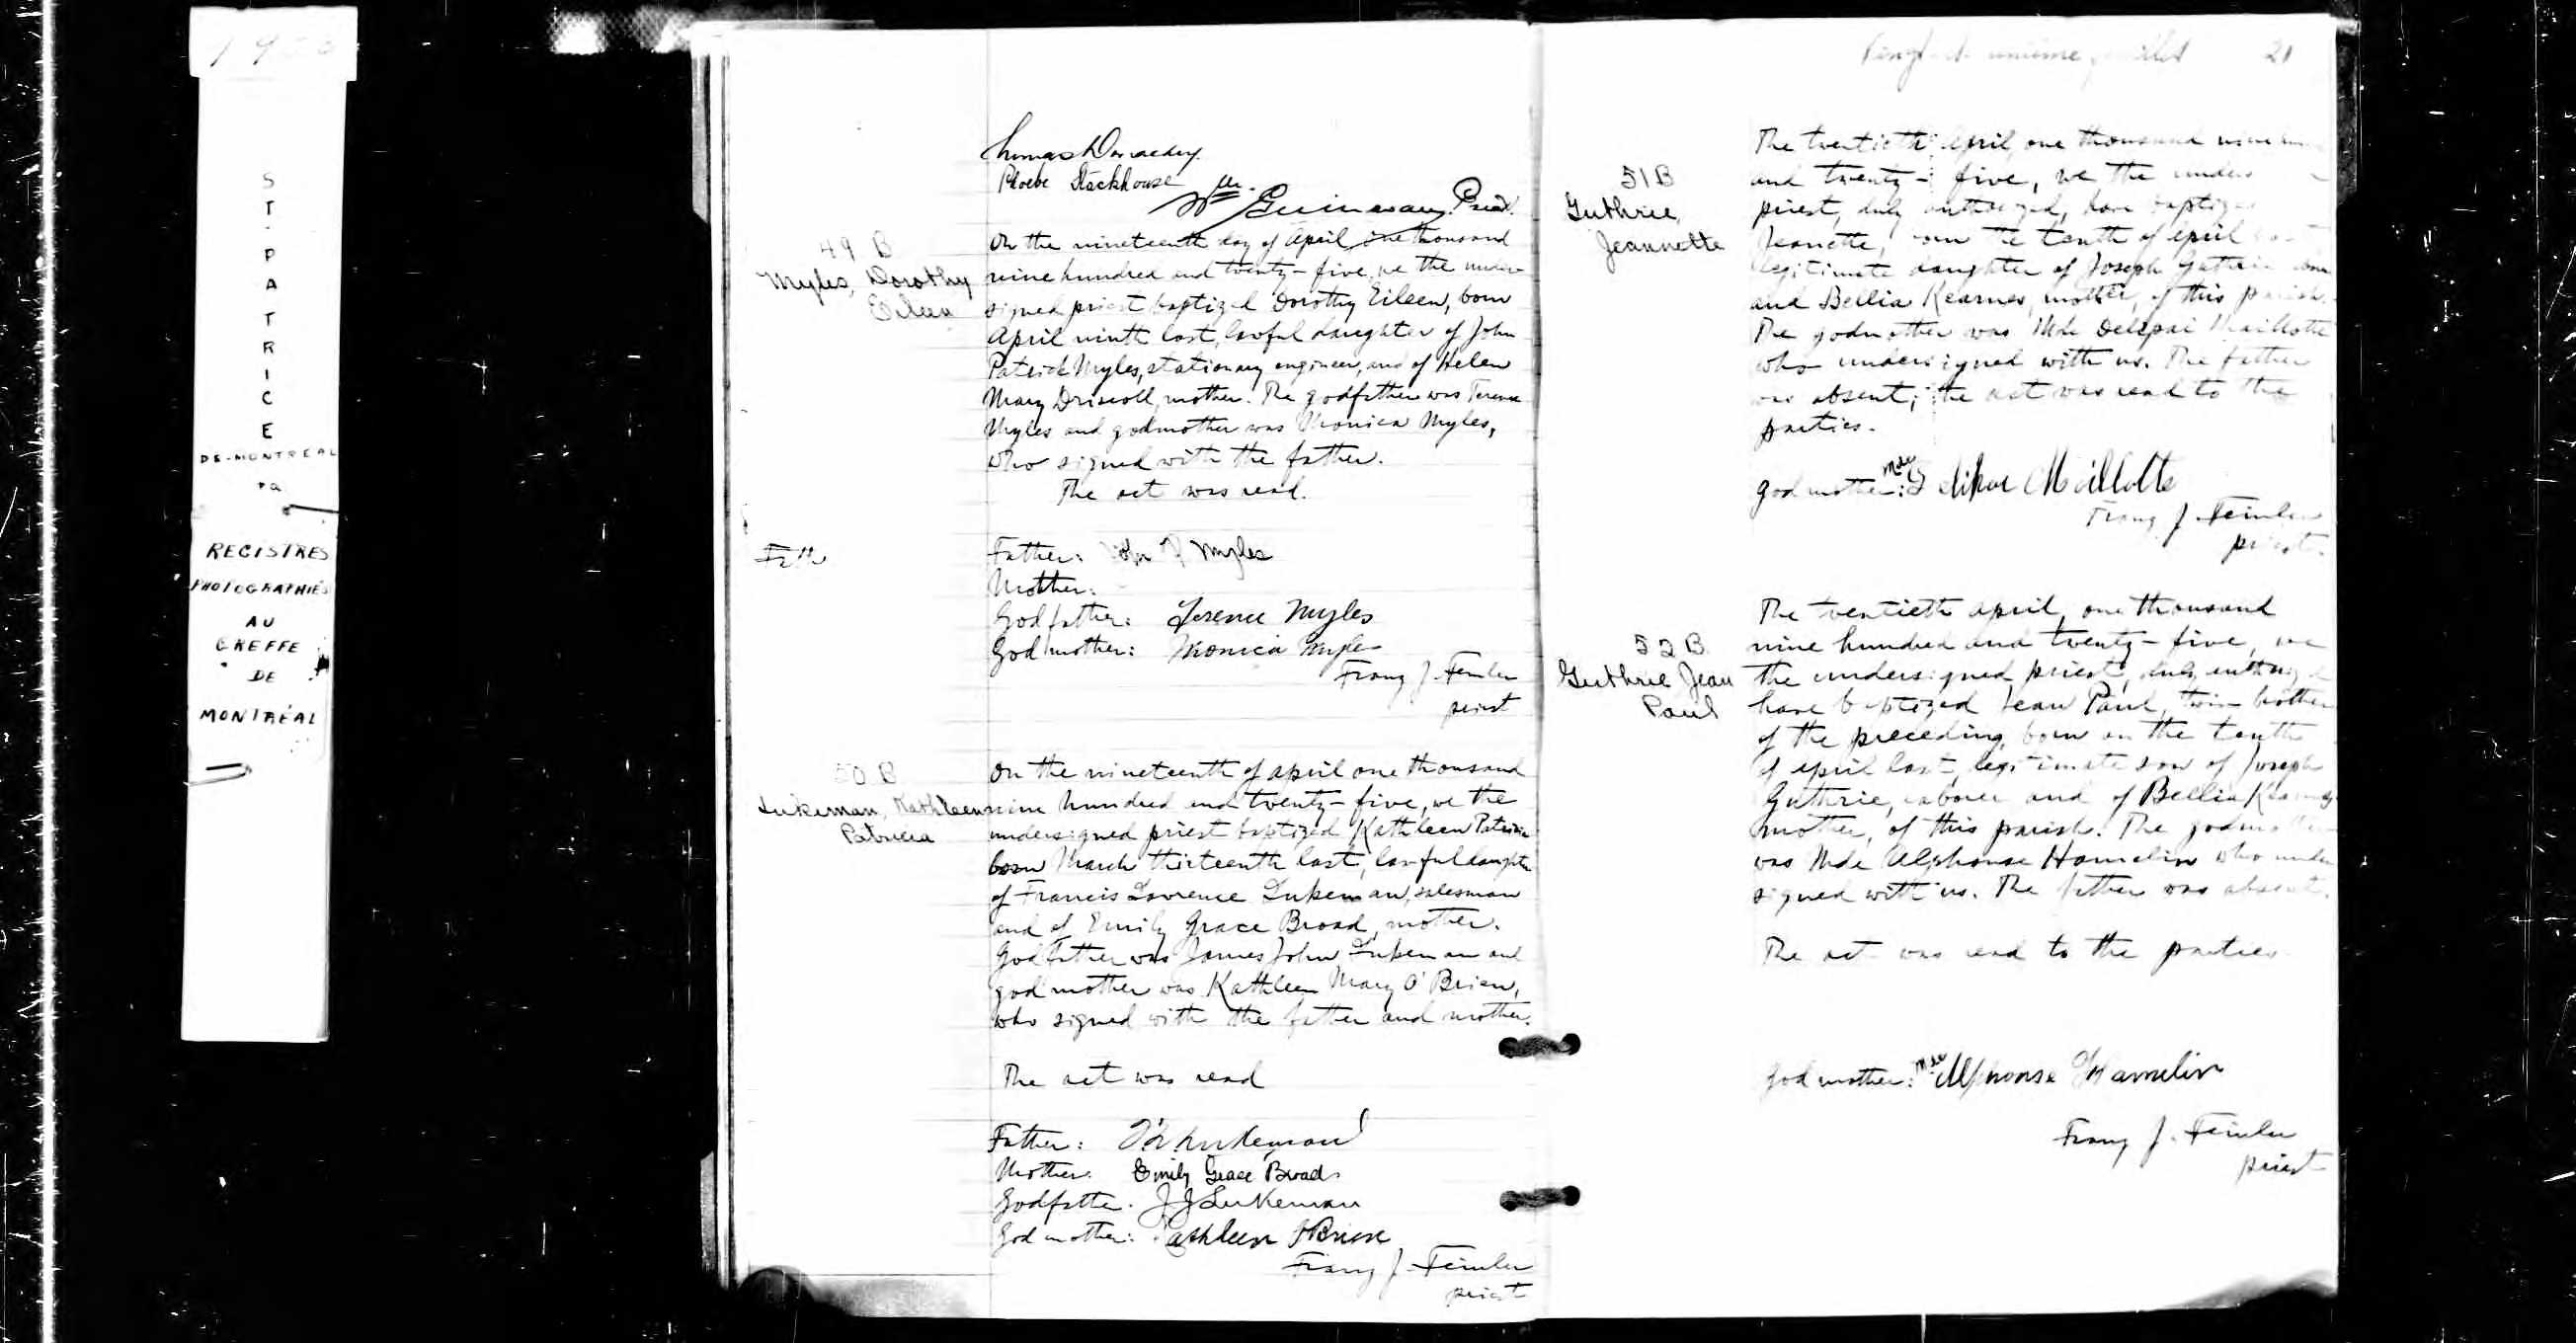 ST. PATRICE
DE-MONTREAL
REGISTRES
PHOTOGRAPHIÉS
AU
GREFFE
DE
MONTRÉAL
Phoebe Stackhouse
49 B
Myles, Dorothy
Eileen
On the nineteenth day of April one thousand
nine hundred and twenty-five, we the under-
signed priest baptized Dorothy Eileen, born
April ninth last, lawful daughter of John
Patrick Myles, stationary engineer, and of Helen
Mary Driscoll, mother. The godfather was Terence
Myles and godmother was Monica Myles,
who signed with the father.
The act was read.
Father: John P Myles
Mother:
Godfather: Terence Myles
Godmother: Monica Myles
Franz J.
priest
50 B
Lukeman, Kathleen
Patricia
On the nineteenth of april one thousand
nine hundred and twenty-five, we the
undersigned priest baptized Kathleen Patricia
born March thirteenth last, lawful daughter
of Francis Lawrence Lukeman, salesman
and of Emily Grace Broad, mother.
Godfather was James John Lukeman and
godmother was Kathleen Mary O'Brien,
who signed with the father and mother.
The act was read
Father: Lukeman
Mother. Emily Grace Broad.
Godfather. J J Lukeman
Godmother: Kathleen O'Brien
Franz J.
priest
21
51 B
Guthrie,
Jeannette
The twentieth April, one thousand nine
and twenty-five, we the under
priest, duly baptized
Jeanette, the tenth of april
legitimate daughter of Joseph Guthrie
and Bellia Kearnes, mother, of this parish.
The godmother was Mde
who undersigned with us. The father
was absent; the act was read to the
parties.
godmother: Mde
Franz J.
priest.
52 B
Guthrie Jean
Paul
The twentieth april, one thousand
nine hundred and twenty-five, we
the undersigned priest, duly
have baptized Jean Paul, twin brother
of the preceding, born on the tenth
of april last, legitimate son of Joseph
Guthrie, laborer and of Bellia
mother, of this parish. The godmother
was Mde Alphonse Hamelin who under
signed with us. The father was absent.
The act was read to the parties.
godmother: Mde Alphonse Hamelin
Franz J.
priest